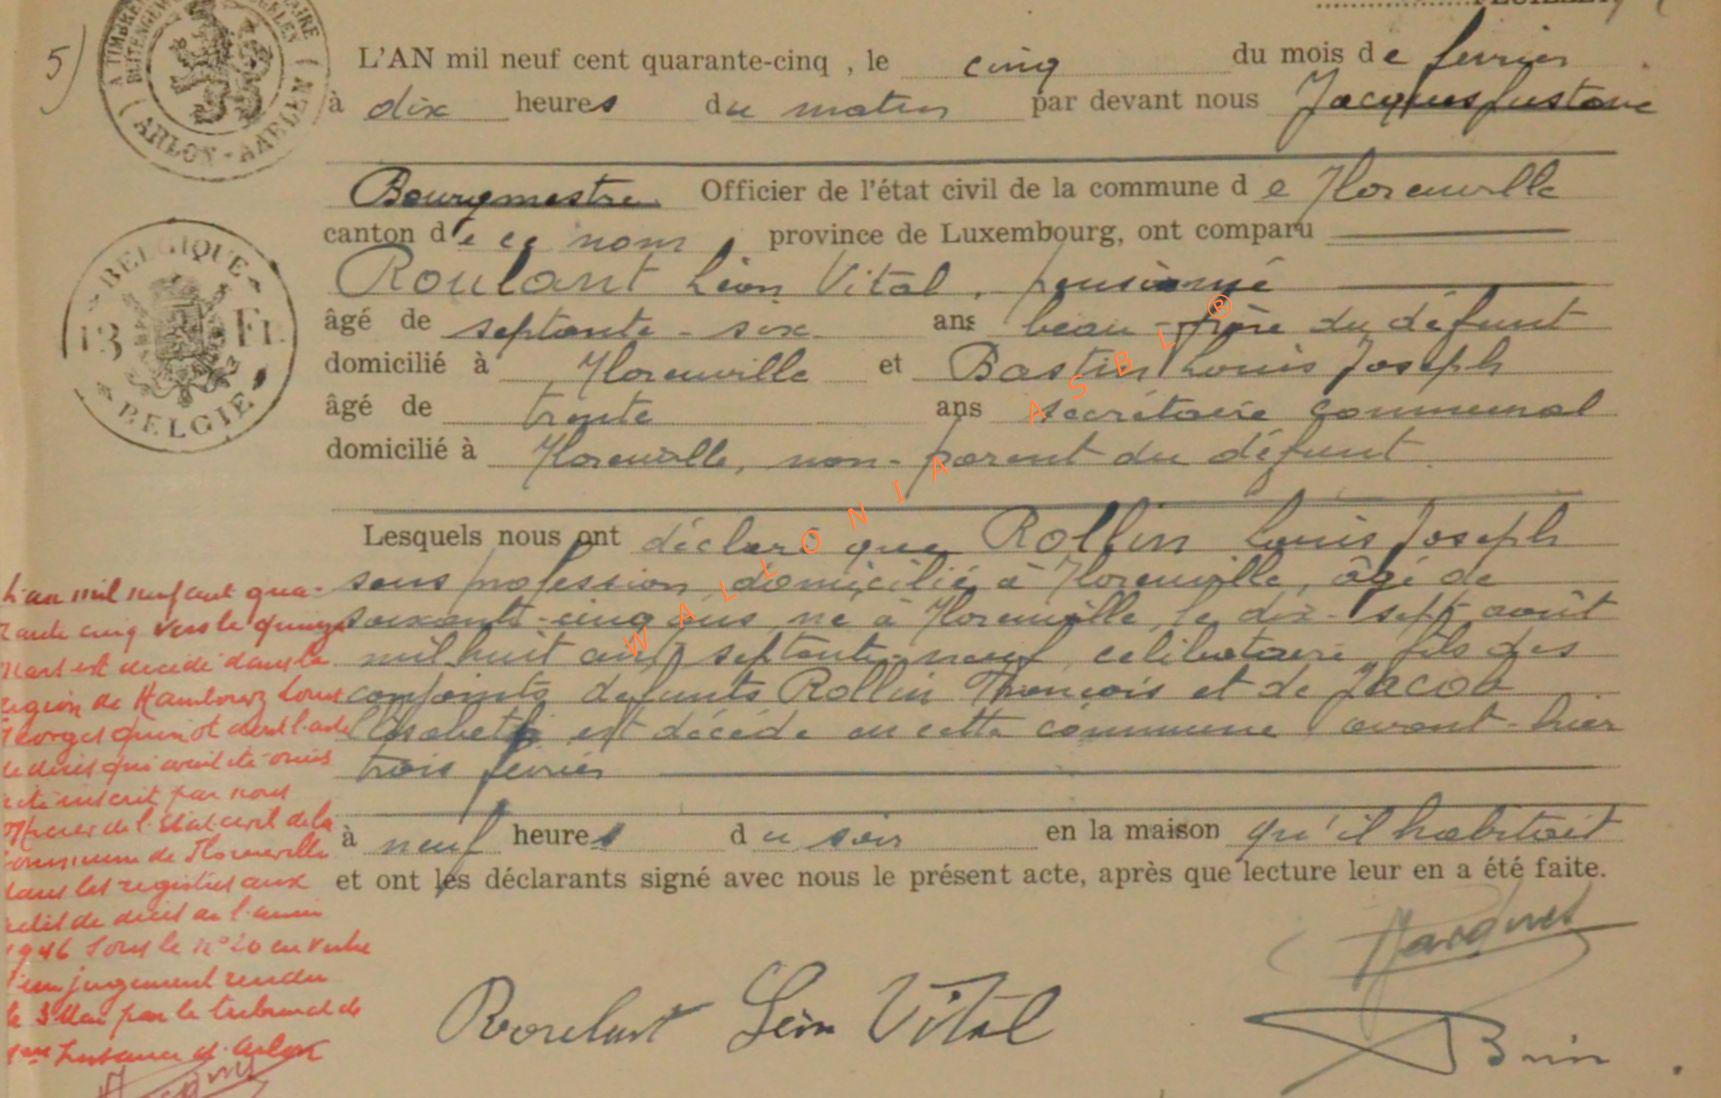 5)
L'AN mil neuf cent quarante-cinq , le cinq du mois de février
à dix heures du matin par devant nous Jacques Gustave
Bourgmestre Officier de l'état civil de la commune de Florenville
canton de ce nom , province de Luxembourg, ont comparu
Roulant Léon Vital , pensionné
âgé de septante-six ans beau-frère du défunt
domicilié à Florenville et Bastin Louis Joseph
âgé de trente ans secrétaire communal
domicilié à Florenville, non-parent du défunt.
Lesquels nous ont déclaré que Rollin Louis Joseph
sans profession domicilié à Florenville, âgé de
soixante-cinq ans, né à Florenville, le dix-sept août
mil huit cent septante-neuf, célibataire, fils des
conjoints défunts Rollin François et de Jacob
Elisabeth est décédé en cette commune avant-hier
trois février
à neuf heures du soir en la maison qu'il habitait
et ont les déclarants signé avec nous le présent acte, après que lecture leur en a été faite.
Jacques
Roulant Léon Vital
L'an mil neuf cent qua-
rante cinq vers le quinze
mars est décédé dans la
région de Hambourg Louis
Georges dont l'acte
de décès qui avait été omis
a été inscrit par nous
Officier de l'Etat civil de la
commune de Florenville
dans les registres aux
actes de décès de l'année
1946 sous le n° 20 en vertu
d'un jugement rendu
le 3 Mai par le tribunal de
1ère Instance d'Arlon
BELGIQUE
3 Fr
BELGIE
ARLON - AARLEN
WALLONIA ASBL ®